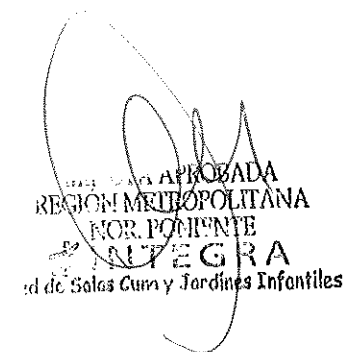 APROBADA
REGION METROPOLITANA
NOR. PONIENTE
INTEGRA
de Salas Cuna y Jardines Infantiles